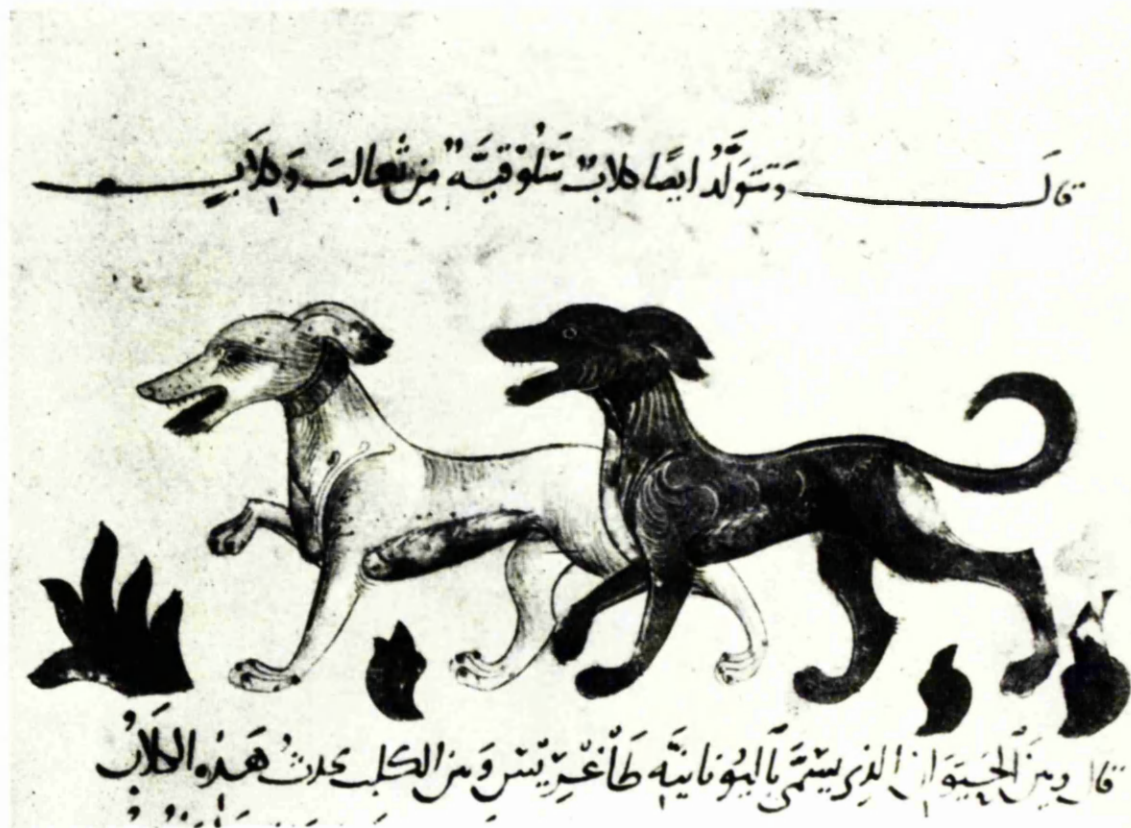 قالَ وَتَتَوَلَّدُ ايضًا كلابٌ سَلُوقيَّةٌ مِن ثعالبَ وَكلابٍ
قال ومِنَ الحَيَوَان الذي يسَمَّى باليُونانيَّه وَمِن الكلب يحدثُ هَذهِ الكلابُ